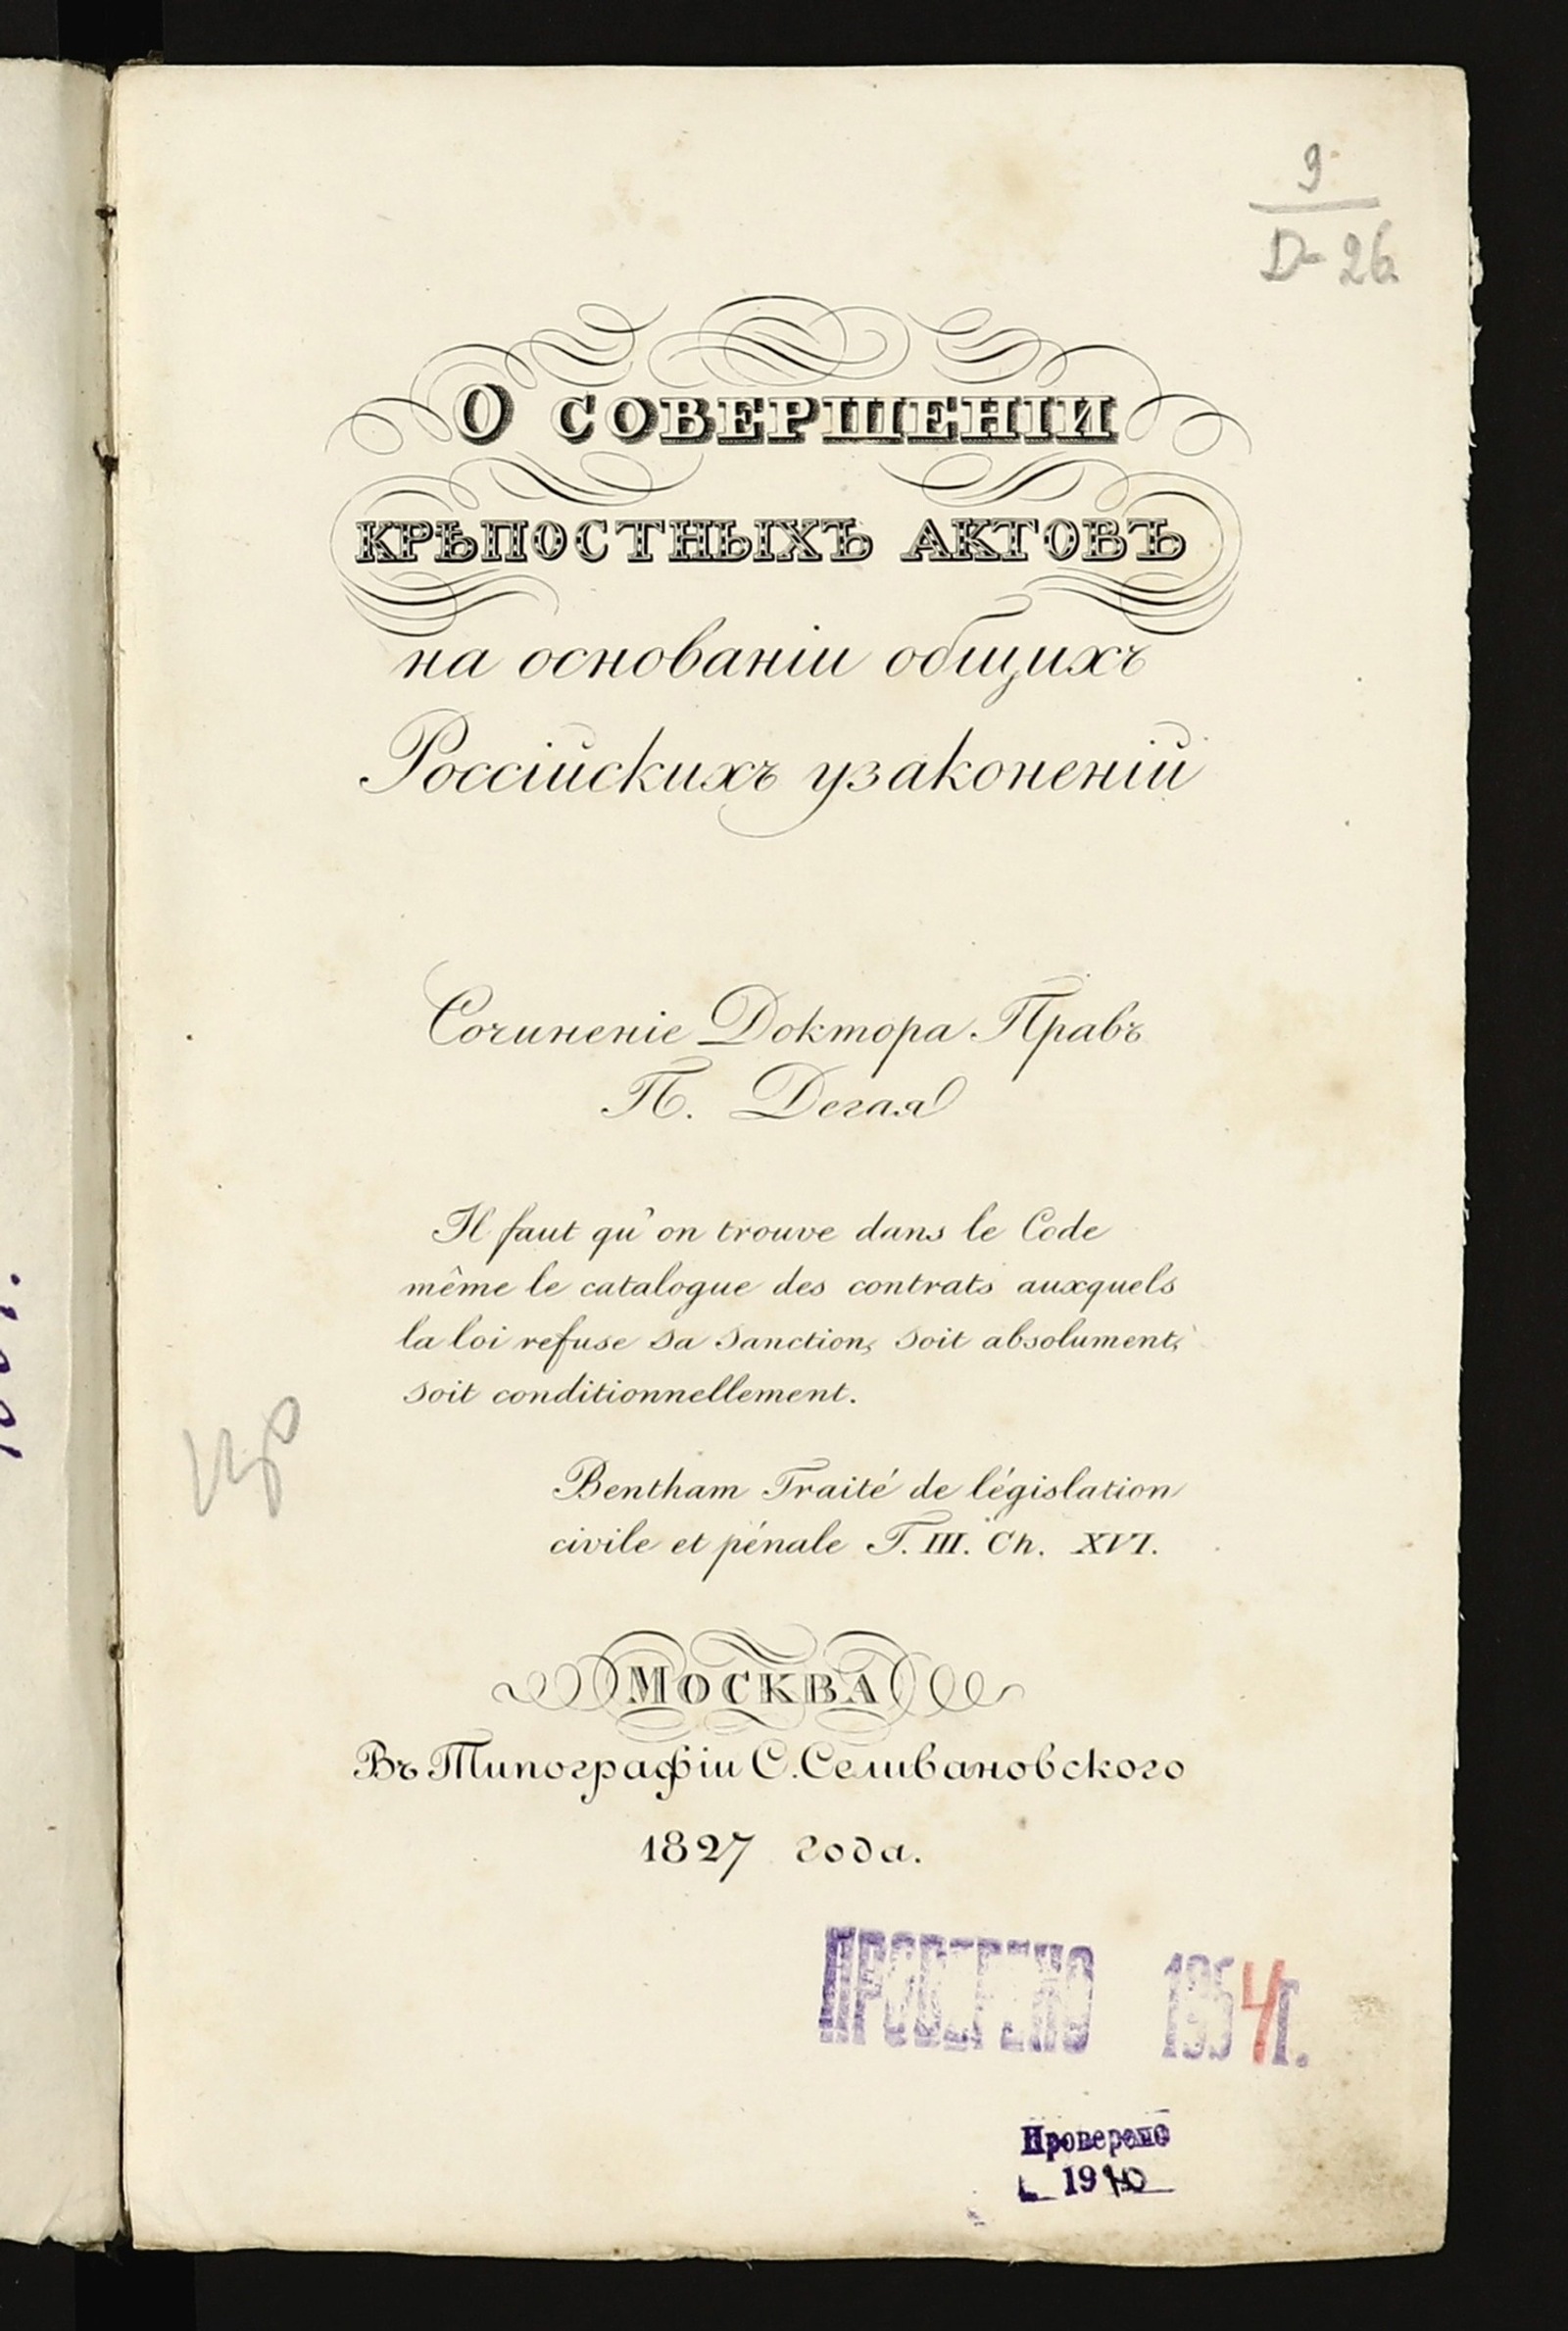 9
D-26
О СОВЕРШЕНІИ
КРѢПОСТНЫХЪ АКТОВЪ
на основаніи общихъ
Россійскихъ узаконеній
Сочиненіе Доктора Правъ
П. Дегая
Il faut qu'on trouve dans le Code
même le catalogue des contrats auxquels
la loi refuse sa sanction, soit absolument,
soit conditionnellement.
Bentham Traité de législation
civile et pénale T. III. Ch. XVI.
МОСКВА
Въ Типографіи С. Селивановского
1827 года.
ПРОВЕРЕНО 1954 г.
Проверено
1940